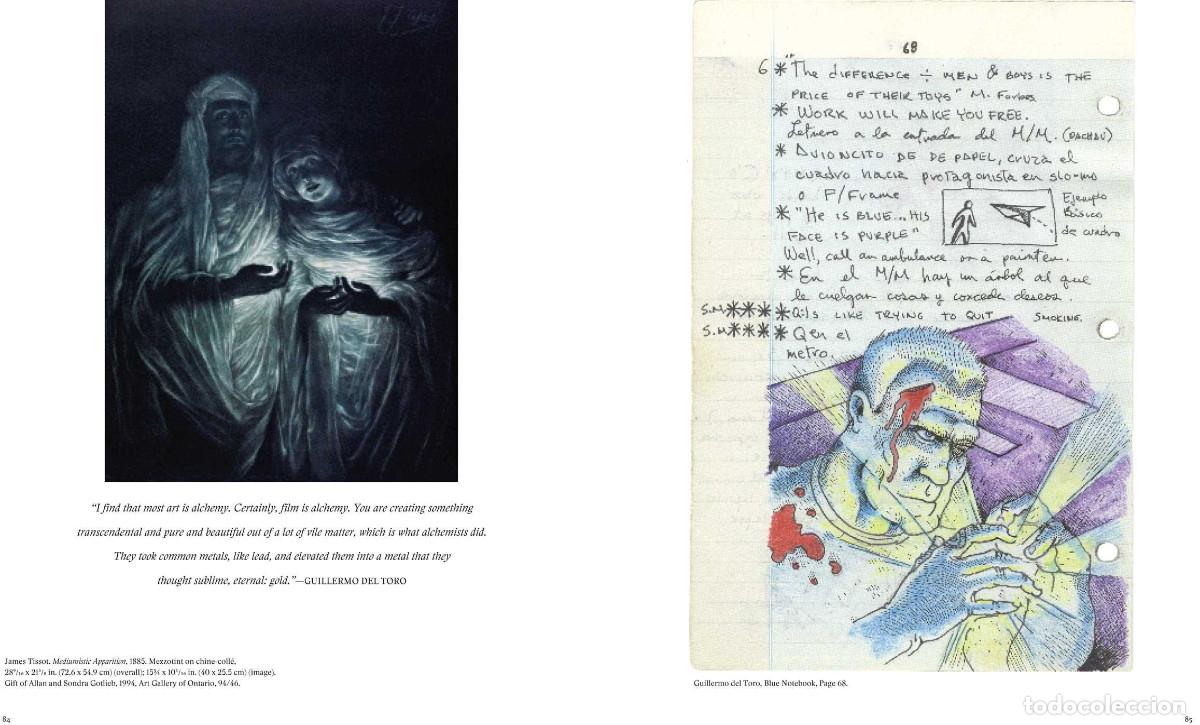 “I find that most art is alchemy. Certainly, film is alchemy. You are creating something
transcendental and pure and beautiful out of a lot of vile matter, which is what alchemists did.
They took common metals, like lead, and elevated them into a metal that they
thought sublime, eternal: gold.”—GUILLERMO DEL TORO
James Tissot. Mediumistic Apparition, 1885. Mezzotint on chine-collé,
28⁹/₁₆ x 21⁵/₈ in. (72.6 x 54.9 cm) (overall); 15¾ x 10¹/₁₆ in. (40 x 25.5 cm) (image).
Gift of Allan and Sondra Gotlieb, 1994, Art Gallery of Ontario, 94/46.
84
68
6 * "The DIFFERENCE ÷ MEN & BOYS IS THE
PRICE OF THEIR TOYS" M. Forbes
* WORK WILL MAKE YOU FREE.
Letrero a la entrada del M/M. (DACHAU)
* AVIONCITO DE DE PAPEL, cruza el
cuadro hacia protagonista en slo-mo
o F/Frame
Ejemplo
Básico
de cuadro
* "He IS BLUE... HIS
FACE IS PURPLE"
Well, call an ambulance or a painter.
* En el M/M hay un árbol al que
le cuelgan cosas y concede deseos.
S.M**** Q: IS LIKE TRYING TO QUIT SMOKING.
S.M**** Q en el
metro.
Guillermo del Toro, Blue Notebook, Page 68.
85
todocoleccion